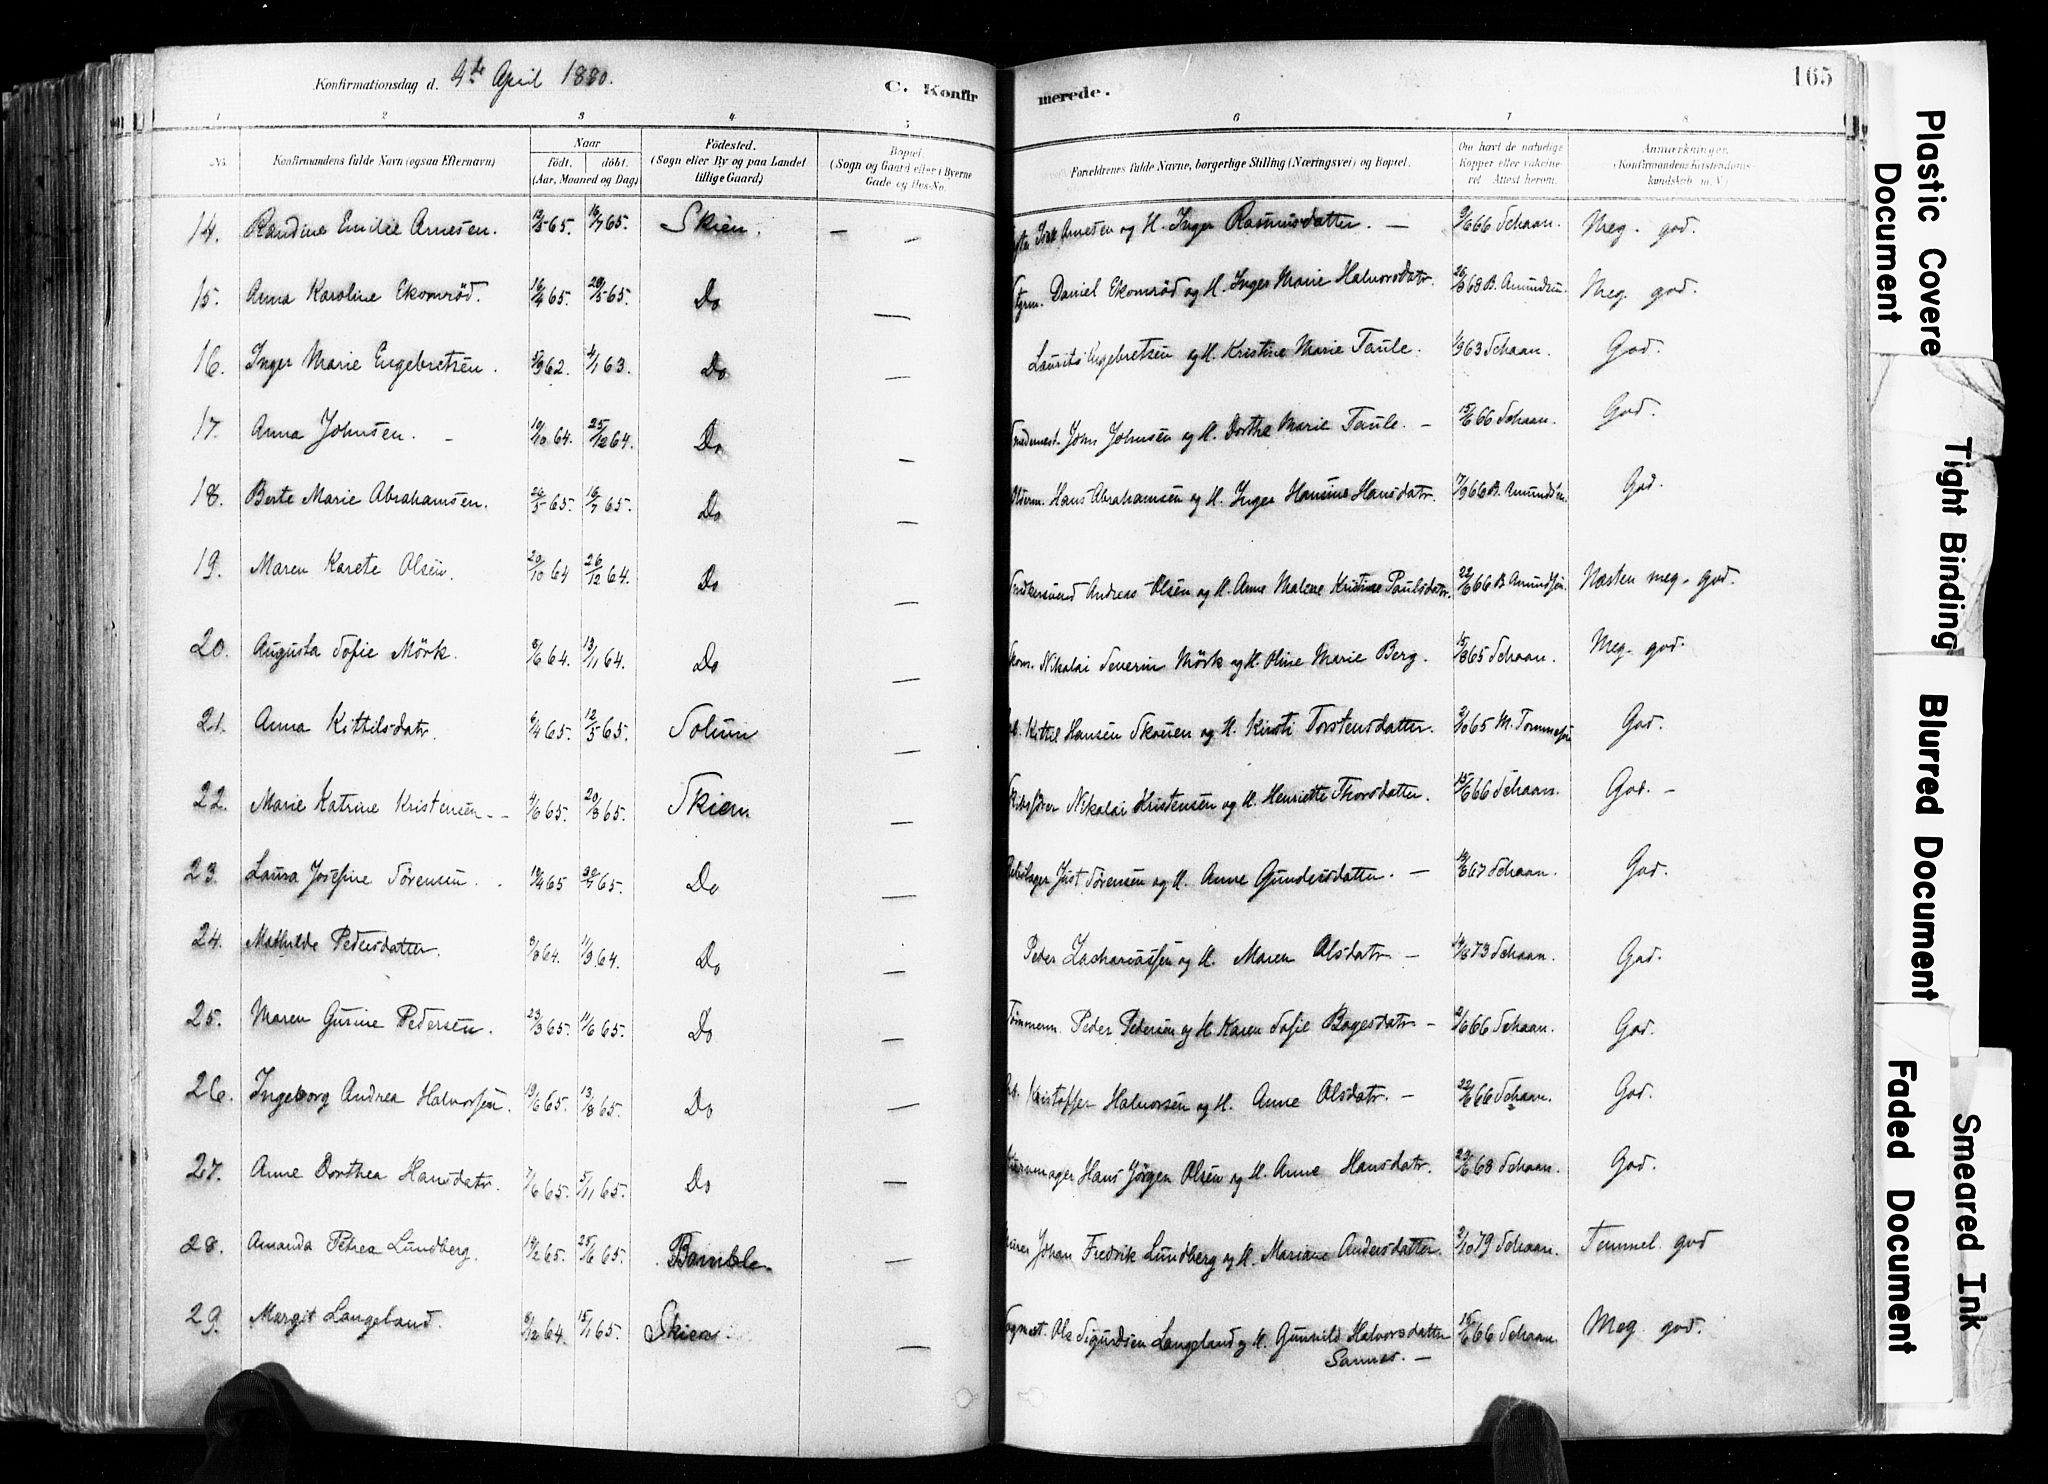 Konfirmationsdag d. 4de April 1880.
C. Konfirmerede.
165
1 2 3 4 5 6 7 8
No.
Konfirmandens fulde Navn (ogsaa Efternavn)
Naar
födt. döbt.
(Aar, Maaned og Dag)
Födested.
(Sogn eller By og paa Landet
tillige Gaard)
Bopæl.
(Sogn og Gaard eller i Byerne
Gade og Hus-No.
Forældrenes fulde Navne, borgerlige Stilling (Næringsvei) og Bopæl.
Om havt de naturlige
Kopper eller vakcine-
ret. Attest herom.
Anmærkninger.
(Konfirmandens Kristendoms-
kundskab m. V.)
14. Emilie Arnesen. 65. 65. Skien. — — Arnesen og H. Inger Rasmusdatter. — 9/6 66 Schaan. Meg. god.
15. Anna Karoline Ekomröd. 16/4 65. 28/5 65. Do — Styrm. Daniel Ekomröd og H. Inger Marie Halvorsdatr. 68 B. Amundsen. Meg. god.
16. Inger Marie Engebretsen. 62. 4/1 63. Do — Laurits Engebretsen og H. Kristine Marie Taule. 63 Schaan. God.
17. Anna Johnsen. — 19/10 64. 25/12 64. Do — John Johnsen og H. Dorthe Marie Taule. — 15/6 66 Schaan. God.
18. Berte Marie Abrahamsen. 26/5 65. 16/7 65. Do — Hans Abrahamsen og H. Inger Hansine Hansdatr. 17/9 66 B. Amundsen. God.
19. Maren Karete Olsen. 20/10 64 26/12 64. Do — Snedkersvend Andreas Olsen og H. Anne Malene Kristine Paulsdatr. 22/6 66 B Amundsen. Næsten meg. god.
20. Augusta Sofie Mörk. 64. 13/11 64. Do — Skom. Nikolai Severin Mörk og H. Oline Marie Berg. 15/8 65 Schaan. Meg. god.
21. Anna Kittilsdatr. 65. 12/5 65. Solum — Arb. Kittil Hansen Skauen og H. Kirsti Torstensdatter. 65 M. Tommesen God.
22. Marie Katrine Kristensen — 65. 20/8 65. Skien — Skibsförer Nikolai Kristensen og H. Henriette Thorsdatter. 15/6 66 Schaan. God. —
23. Laura Josefine Sörensen. 19/4 65 65. Do — Just Sörensen og H. Anne Gundersdatter. — 67 Schaan. God.
24. Mathilde Pedersdatter. 64. 11/9 64. Do — Peder Zachariassen og H. Maren Olsdatr — 73 Schaan. God.
25. Maren Gurine Pedersen. 23/3 65. 11/6 65. Do — Tömmerm. Peder Pedersen og H Karen Sofie Bagesdatr — 66 Schaan. God.
26. Ingeborg Andrea Halvorsen. 19/6 65. 13/8 65. Do — Arb. Kristoffer Halvorsen og H. Anne Olsdatr. — 22/6 66 Schaan. God.
27. Anne Dorthea Hansdatr. 7/6 65. 5/11 65. Do — Hans Jörgen Olsen og H. Anne Hansdatr. 68 Schaan. God.
28. Amanda Petrea Lundberg. 65. 25/6 65. Bamble. — Johan Fredrik Lundberg og H. Mariane Andersdatter. 2/10 79 Schaan. Temmel. god
29. Margit Langeland. 8/12 64. 15/1 65. Skien — Ole Sigurdsen Langeland og H. Gunnild Halvorsdatter 15/6 66 Schaan. Meg. god.
Sannes. —
Plastic Covere
Document
Tight Binding
Blurred Document
Faded Document
Smeared Ink